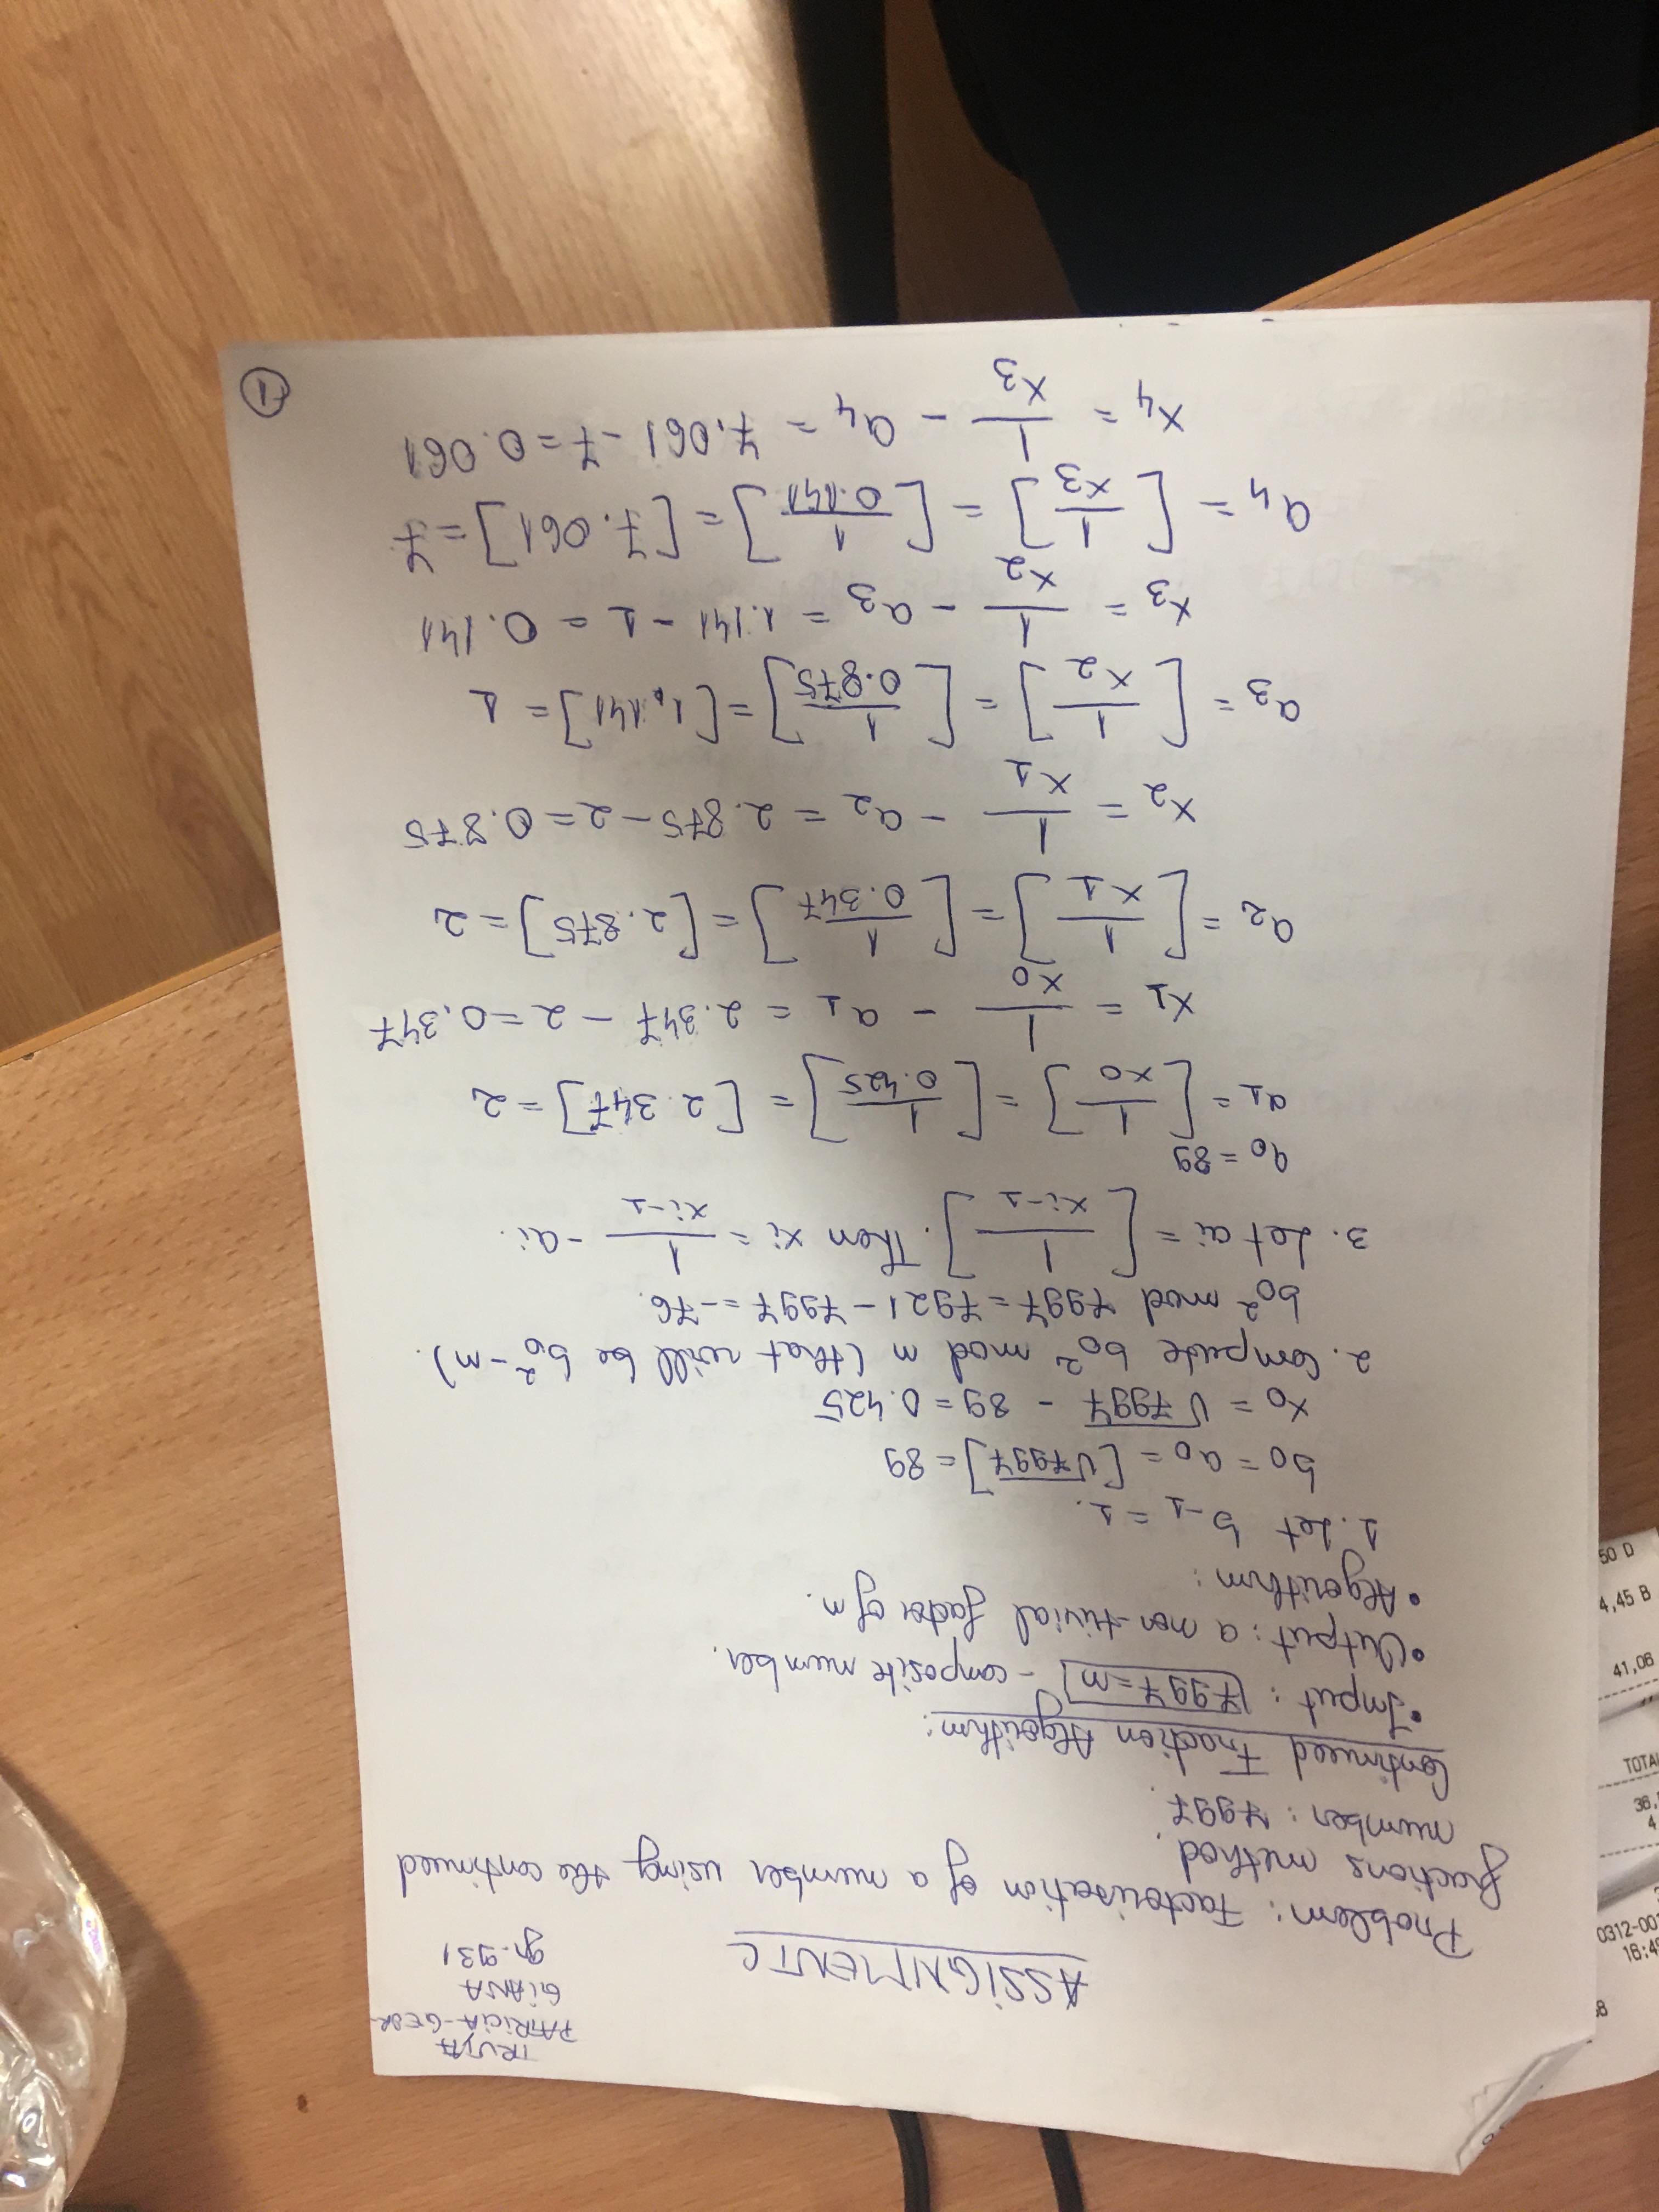 TRUȚA
PATRICIA-GEOR-
GIANA
gr. 931
ASSIGNMENT C
Problem: Factorisation of a number using the continued
fractions method
number: 7997.
Continued Fraction Algorithm:
• Input: 7997=n - composite number.
• Output: a non-trivial factor of n.
• Algorithm:
1. Let b-1 = 1.
b0 = a0 = [√7997] = 89
x0 = √7997 - 89 = 0.425
2. Compute b0² mod n (that will be b0² - n).
b0² mod 7997 = 7921 - 7997 = -76.
3. Let ai = [1/xi-1]. Then xi = 1/xi-1 - ai.
a0 = 89
a1 = [1/x0] = [1/0.425] = [2.347] = 2
x1 = 1/x0 - a1 = 2.347 - 2 = 0.347
a2 = [1/x1] = [1/0.347] = [2.875] = 2
x2 = 1/x1 - a2 = 2.875 - 2 = 0.875
a3 = [1/x2] = [1/0.875] = [1.141] = 1
x3 = 1/x2 - a3 = 1.141 - 1 = 0.141
a4 = [1/x3] = [1/0.141] = [7.061] = 7
x4 = 1/x3 - a4 = 7.061 - 7 = 0.061
1
50 D
4,45 B
41,06
36,
0312-00